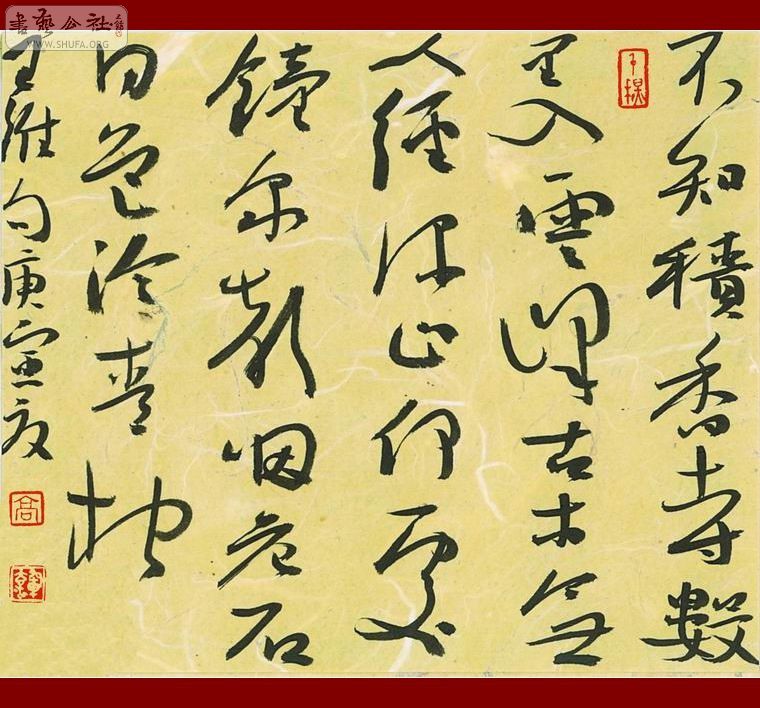 書藝公社
WWW.SHUFA.ORG
不知積香寺數
里入雲峰古木無
人徑深山何處
鐘泉聲咽危石
日色冷青松
王維句庚寅夏
高